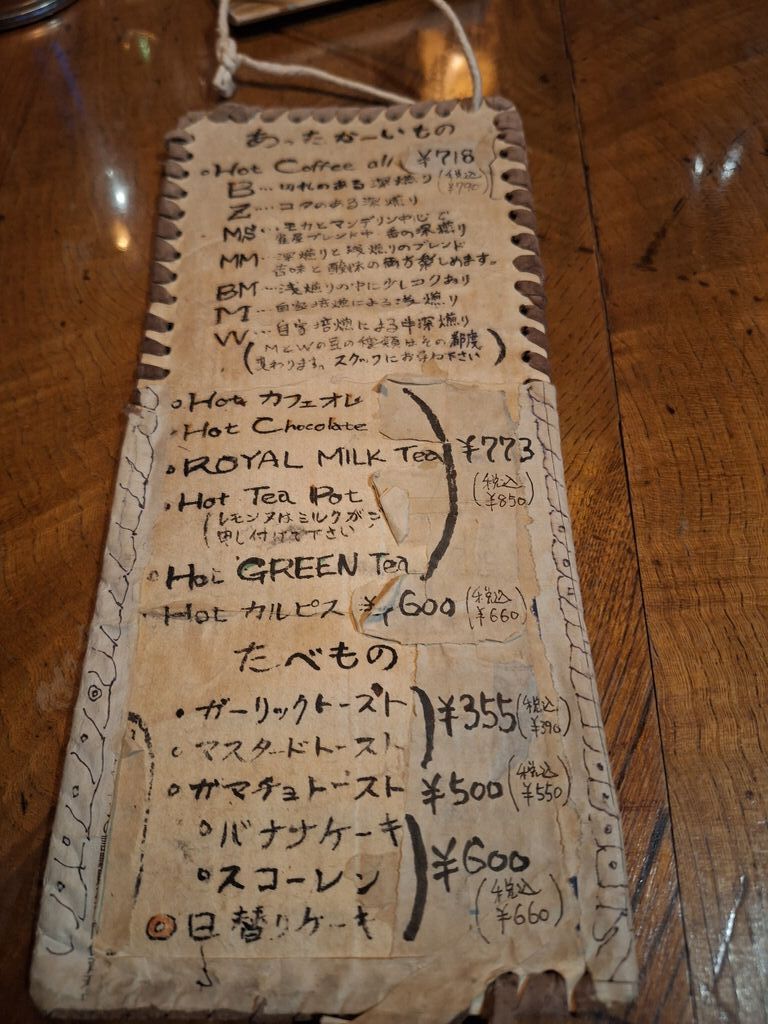 あったかーいもの
Hot Coffee all ¥718
(税込 ¥790)
B…切れのある深煎り
Z…コクのある深煎り
MS…モカとマンデリン中心で
ブレンド中一番の深煎り
MM…深煎りと浅煎りのブレンド
苦味と酸味の両方楽しめます。
BM…浅煎りの中に少しコクあり
M…自家焙煎による浅煎り
W…自家焙煎による中深煎り
(MとWの豆の種類はその都度
変わります。スタッフにお尋ね下さい)
Hot カフェオレ
Hot Chocolate
ROYAL MILK Tea ¥773
(税込 ¥850)
Hot Tea Pot
(レモン又はミルクがご
申し付け下さい
Hot GREEN Tea
Hot カルピス ¥600 (税込 ¥660)
たべもの
ガーリックトースト ¥355 (税込 ¥390)
マスタードトースト
ガマチョトースト ¥500 (税込 ¥550)
バナナケーキ
スコーレン ¥600
(税込 ¥660)
日替りケーキ